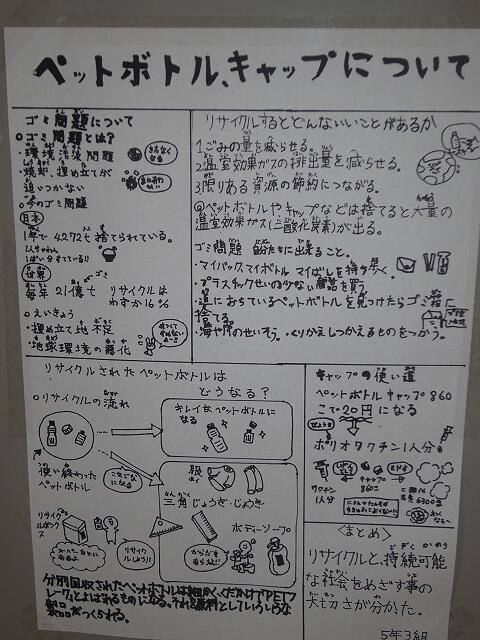 ペットボトル、キャップについて
ゴミ問題について
○ゴミ問題とは?
・環境汚染問題
・焼却、埋め立てが
追いつかない
○今のゴミ問題
日本
1年で4272七捨てられている。
世界
ゴミ
毎年21億t リサイクルは
わずか16%
○えいきょう
・埋め立て地不足
・地球環境の悪化
リサイクルするとどんないいことがあるか
1.ごみの量を減らせる。
2.温室効果ガスの排出量を減らせる。
3.限りある資源の節約につながる。
◎ペットボトルやキャップなどは捨てると大量の
温室効果ガス(二酸化炭素)が出る。
ゴミ問題 自分たちに出来ること。
・マイバックマイボトル マイばしを持ち歩く。
・プラスチックせいの少ない商品を買う。
・道におちているペットボトルを見つけたらゴミ箱に
捨てる。
・海や川のせいそう。・くりかえしつかえるものをつかう。
リサイクルされたペットボトルは
どうなる?
○リサイクルの流れ
キレイなペットボトルに
なる
使い終わった
ペットボトル
服
三角じょうぎ・じょうぎ
ボディーソープ
リサイクル
ボックス
リサイクルしよう!
分別回収されたペットボトルは細かくくだかけてPETフ
レークとよばれるものになる。それを原料としていろいろな
製品がつくられる。
キャップの使い道
ペットボトルキャップ860
こで20円になる
ポリオワクチン1人分
ワクチン
1人分
キャップ
860コ
=
6300g
<まとめ>
リサイクルと、持続可能
な社会をめざす事の
大切さが分かた。
5年3組